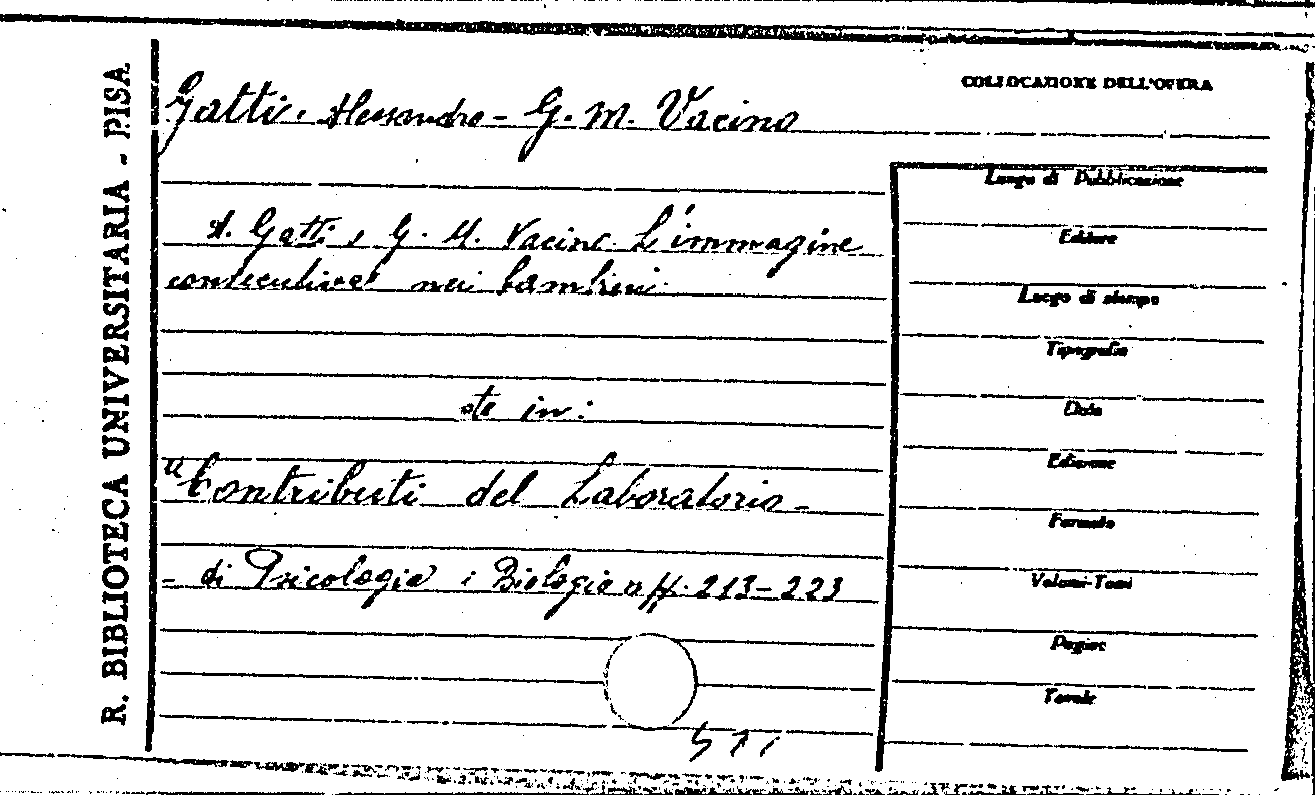 R. BIBLIOTECA UNIVERSITARIA - PISA
Gatti, Alessandro - G. M. Vacino
COLLOCAZIONE DELL'OPERA
A. Gatti, G. M. Vacino L'immagine
consecutiva nei bambini.
sta in:
"Contributi del Laboratorio -
- di Psicologia e Biologia" ff. 213-223
Luogo di Pubblicazione
Editore
Luogo di stampa
Tipografia
Data
Edizione
Formato
Volumi-Tomi
Pagine
Tavole